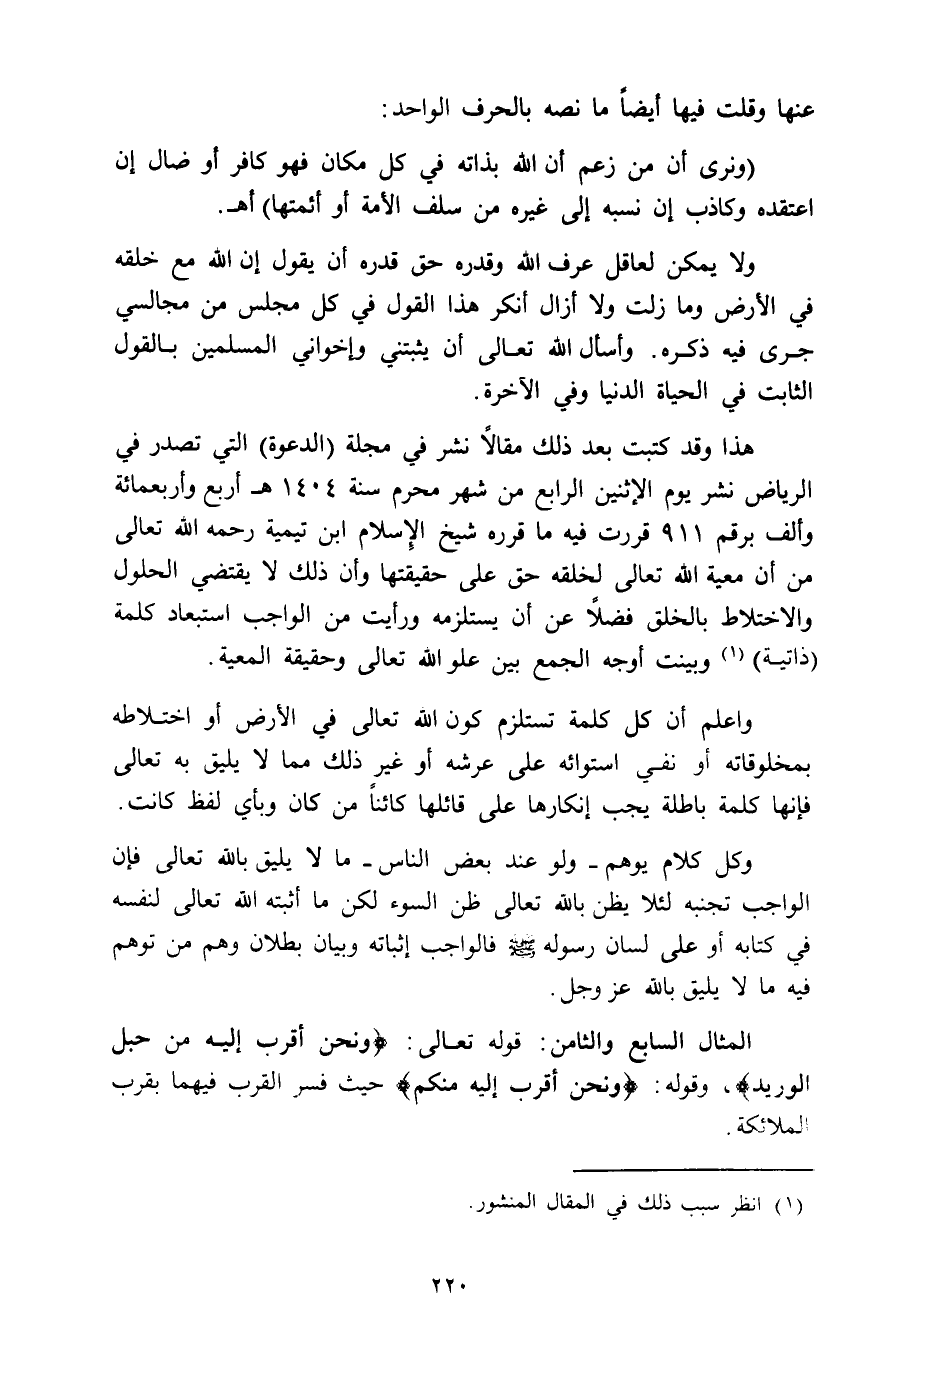 عنها وقلت فيها أيضاً ما نصه بالحرف الواحد:
(ونرى أن من زعم أن الله بذاته في كل مكان فهو كافر أو ضال إن
اعتقده وكاذب إن نسبه إلى غيره من سلف الأمة أو أئمتها) أهـ.
ولا يمكن لعاقل عرف الله وقدره حق قدره أن يقول إن الله مع خلقه
في الأرض وما زلت ولا أزال أنكر هذا القول في كل مجلس من مجالسي
جرى فيه ذكره. وأسأل الله تعالى أن يثبتني وإخواني المسلمين بالقول
الثابت في الحياة الدنيا وفي الآخرة.
هذا وقد كتبت بعد ذلك مقالاً نشر في مجلة (الدعوة) التي تصدر في
الرياض نشر يوم الإثنين الرابع من شهر محرم سنة ١٤٠٤ هـ أربع وأربعمائة
وألف برقم ٩١١ قررت فيه ما قرره شيخ الإسلام ابن تيمية رحمه الله تعالى
من أن معية الله تعالى لخلقه حق على حقيقتها وأن ذلك لا يقتضي الحلول
والاختلاط بالخلق فضلاً عن أن يستلزمه ورأيت من الواجب استبعاد كلمة
(ذاتية) (١) وبينت أوجه الجمع بين علو الله تعالى وحقيقة المعية.
واعلم أن كل كلمة تستلزم كون الله تعالى في الأرض أو اختلاطه
بمخلوقاته أو نفي استوائه على عرشه أو غير ذلك مما لا يليق به تعالى
فإنها كلمة باطلة يجب إنكارها على قائلها كائناً من كان وبأي لفظ كانت.
وكل كلام يوهم - ولو عند بعض الناس - ما لا يليق بالله تعالى فإن
الواجب تجنبه لئلا يظن بالله تعالى ظن السوء لكن ما أثبته الله تعالى لنفسه
في كتابه أو على لسان رسوله ﷺ فالواجب إثباته وبيان بطلان وهم من توهم
فيه ما لا يليق بالله عز وجل.
المثال السابع والثامن: قوله تعالى: ﴿ونحن أقرب إليه من حبل
الوريد﴾، وقوله: ﴿ونحن أقرب إليه منكم﴾ حيث فسر القرب فيهما بقرب
الملائكة.
(١) انظر سبب ذلك في المقال المنشور.
٢٢٠